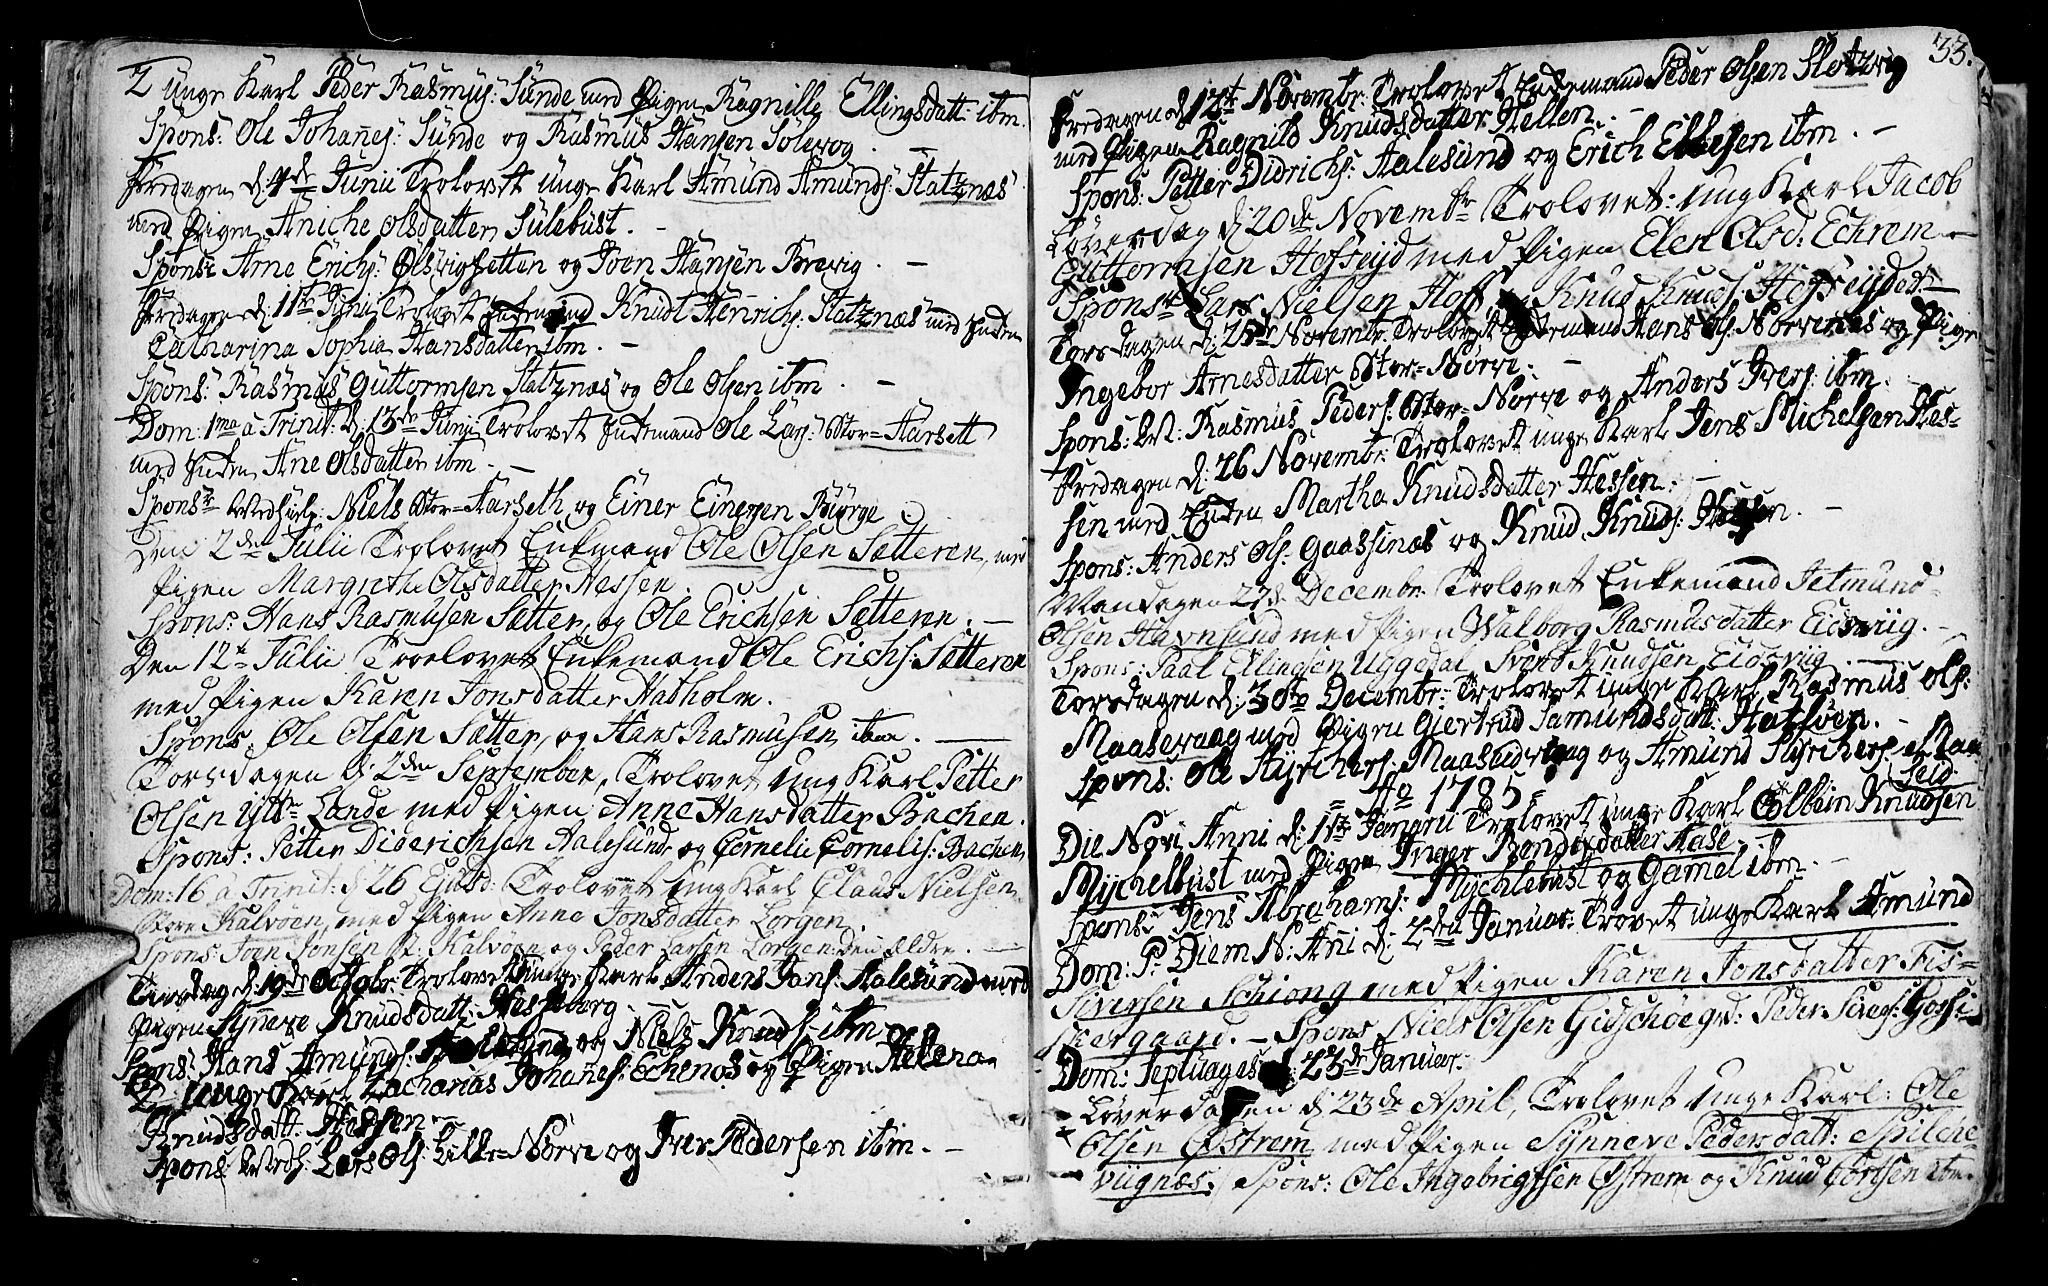 2 unge Karl Peder Rasmus: Sunde med Pigen Ragnille Ellingsdatt: ibm.
Spons: Ole Johañes: Sunde og Rasmus Hansen Solevog. –
Fredagen d: 4de Junii Trolovet unge Karl Amund Amunds: Statznæs
med Pigen Aniche Olsdatter Sulebust. –
Spons: Arne Erichs: Olsvigsetten og Joen Hansen Brevig. –
Fredagen d: 11te Junii Trolovet Enkemand Knudt Henrichs: Statznæs med Enken
Catharina Sophia Hansdatter ibm. –
Spons: Rasmus Guttormsen Statznæs og Ole Olsen ibm. –
Dom: 1ma a Trinit: d: 13de Junij Trolovet Enkemand Ole Lars: Stor=Aarsett
med Enken Ane Olsdatter ibm. –
Spons: Medhielp: Niels Stor=Aarseth og Einer Einersen Biørge.
Den 2den Julii Trolovet Enkemand Ole Olsen Sætteren, med
Pigen Margrethe Olsdatter Hessen.
Spons: Hans Rasmusen Sætter, og Ole Erichsen Sætteren. –
Den 12te Julii Troelovet Enkemand Ole Erichs: Sætteren
med Pigen Karen Jonsdatter Hatholm.
Spons: Ole Olsen Sætter, og Hans Rasmusen ibm. –
Torsdagen d: 2den September, Trolovet Ung Karl Petter
Olsen Yttr Lande med Pigen Anne Hansdatter Bachen.
Spons: Petter Diderichsen Halesund og Cornelii Cornelis: Bachen
Dom: 16 a Trinit: d: 26 Ejusd: Trolovet Ung Karl Claus Nielsen
Store Kalvøen, med Pigen Anne Jonsdatter Lorgen.
Spons: Joen Jonsen St: Kalvøen og Peder Larsen Lorgen den ældre. –
Tirsdag d: 19de Octobr: Trolovet unge Karl Anders Jans: Aalesund med
Pigen Synneve Knudsdatt: Hessberg. –
Spons: Hans Amunds: og Niels Knuds: ibm
2 unge Karl Zacharias Johañes: Echenos og Pigen Hellena
Knudsdatt: Hessen. –
Spons: Medh: Lars Ols: Lille=Nørve og Iver Pedersen ibm. –
33.
Fredagen d: 12te Novembr: Trolovet Enkemand Peder Olsen Slotzvig
med Pigen Ragnild Knudsdatter Hellen. –
Spons: Petter Didrichs: Aalesund og Erich Ellefsen ibm. –
Løverdag d: 20de Novembr Trolovet: ung Karl Jacob
Guttormsen Hofseyd med Pigen Elen Olsd: Echrem –
Spons: Lars Nielsen Hoff Knud Knuds: Hofseydet –
Torsdagen d: 25de Novembr: Trolovet Enkemand Hans Ols: Nørvenæs og Pigen
Ingebor Arnesdatter Stor=Nørve. –
Spons: Mt: Rasmus Peders: Stor=Nørve og Anders Ivers: ibm.
Fredagen d: 26 Novembr: Trolovet unge Karl Jens Michelsen Hes=
sen med Enken Martha Knudsdatter Hessen. –
Spons: Anders Ols: Gaassenæs og Knud Knuds: Hessen. –
Mandagen 27d: Decembr: Trolovet Enkemand Jetmund
Olsen Havnsund med Pigen Walborg Rasmusdatter Eidsviig. –
Spons: Paal Ellingsen Uggedal, Svend Knudsen Eidsviig. –
Torsdagen d: 30te Decembr: Trolovet unge Karl Rasmus Ols:
Maaseraag med Pigen Giertrud Samundsdatt: Hatløen. –
Spons: Ole Styrchers: Maaseideraag og Amund Styrchers: Maa
seid.
= Ao 1785 =
Die Novi Anni d: 1ste Januarii Trolovet unge Karl Colbein Knudsen
Mychelbust med Pigen Inger Bendixdatter Aase.
Spons: Jens Abrahams: Mychlebust og Gamel ibm –
Dom: P: Diem N: Añi d: 2den Januar: Trovet unge Karl Amund
Siversen Schiong med Pigen Karen Jonsdatter Fis=
kergaard. – Spons Niels Olsen Gidschøegrd: Peder Sivers:
Dom: Septuages: 23de Januar:
Løverdagen d: 23de April, Trolovet Unge Karl: Ole
Olsen Østrem med Pigen Synneve Pedersdatt: Spilche
viignæs. / Spons: Ole Ingebrigtsen Østrem og Knud Tortsen ibm.